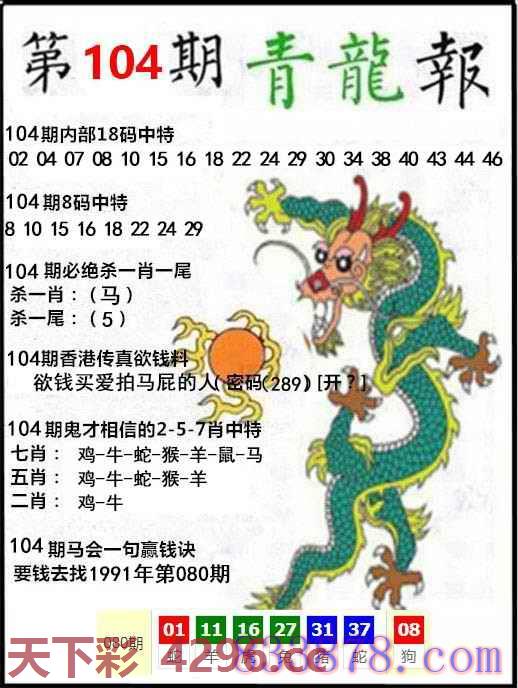 第104期青龍報
104期内部18码中特
02 04 07 08 10 15 16 18 22 24 29 30 34 38 40 43 44 46
104期8码中特
8 10 15 16 18 22 24 29
104期必绝杀一肖一尾
杀一肖：（马）
杀一尾：（5）
104期香港传真欲钱料
欲钱买爱拍马屁的人(密码(289)[开？]
104期鬼才相信的2-5-7肖中特
七肖： 鸡-牛-蛇-猴-羊-鼠-马
五肖： 鸡-牛-蛇-猴-羊
二肖： 鸡-牛
104期马会一句赢钱诀
要钱去找1991年第080期
080期 01 11 16 27 31 37 08
蛇 羊 虎 兔 猪 蛇 狗
天下彩 4296.cc